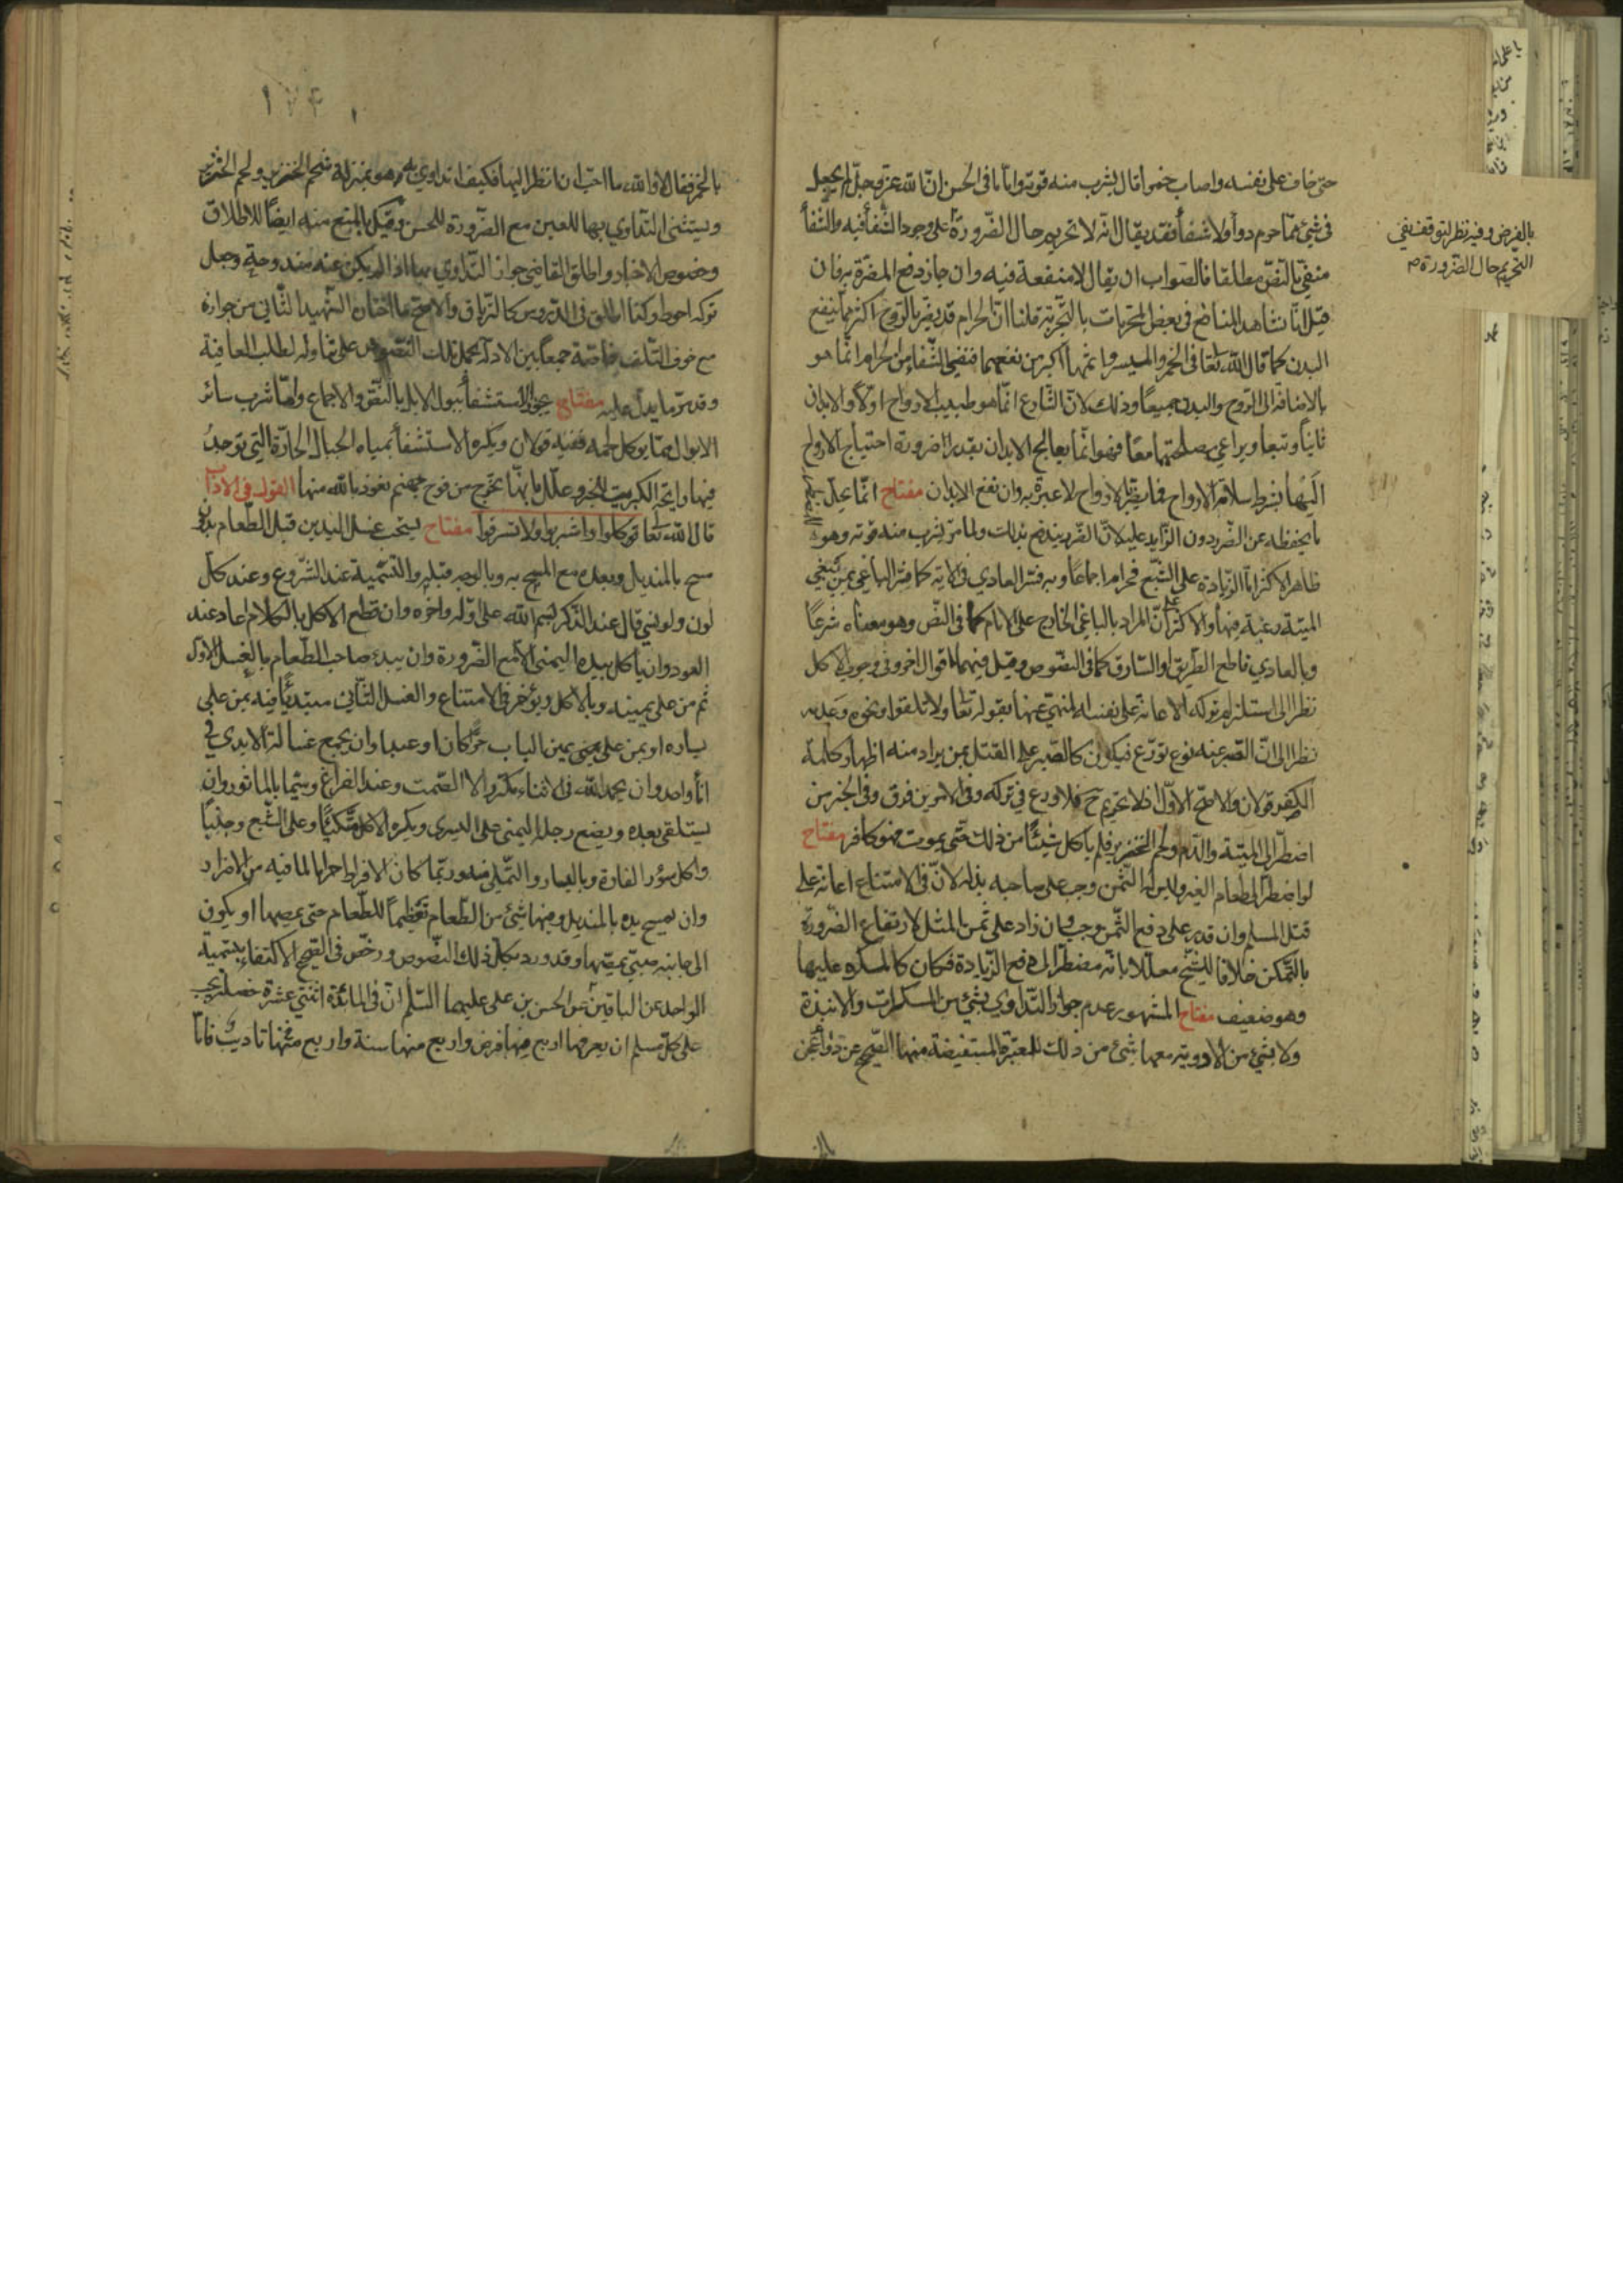 حتى خاف على نفسه واصاب خمرا قال يشرب منه قوته واما ما فى الحسن ان الله عز وجل لم يجعل
فى شئ مما حرم دوآء ولا شفآء فقد يقال انه لا تحريم حال الضرورة على وجود الشفآء فيه والشفآء
منفى بالنص مطلقا فالصواب ان يقال لا منفعة فيه وان جاز دفع المضرة به فان
قيل انا نشاهد المنافع فى بعض المحرمات بالتجربة قلنا ان الحرام قد يضر بالروح اكثر مما ينفع
البدن كما قال الله تعا فى الخمر والميسر واثمهما اكبر من نفعهما فنفى الشفاء من الحرام انما هو
بالاضافة الى الروح والبدن جميعا وذلك لان الشارع انما هو طبيب الارواح اولا والابدان
ثانيا وتبعا ويراعى مصلحتهما معا فهو انما يعالج الابدان بقدر ضرورة احتياج الارواح
اليها بشرط سلامة الارواح فما يضر الارواح لا عبرة به وان نفع الابدان مفتاح انما يحل
ما يحفظه عن الضرر دون الزايد عليه لان الضرر يندفع بذلك ولما مر يشرب منه قوته وهو
ظاهر الاكثر اما الزيادة على الشبع فحرام اجماعا وبه فسر العادي فى الاية كما فسر الباغى بمن يبغى
الميتة رغبة فيها والاكثر على ان المراد بالباغى الخارج على الامام كما فى النص وهو معناه شرعا
وبالعادي قاطع الطريق او السارق كما فى النصوص وقيل فيهما اقوال اخر وفى وجوب الاكل
نظرا الى استلزام تركه الاعانة على نفسه المنهى عنها بقوله تعا ولا تلقوا ونحوه وعدمه
نظرا الى ان الصبر عنه نوع تورع فيكون كالصبر على القتل بمن يراد منه اظهار كلمة
الكفر قولان والاصح الاول اذ لا تحريم ح فلا ورع فى تركه وفى الامرين فرق وفى الخبر من
اضطر الى الميتة والدم ولحم الخنزير فلم ياكل شيئا من ذلك حتى يموت فهو كافر مفتاح
لو اضطر الى طعام الغير وليس له الثمن وجب على صاحبه بذله لان فى الامتناع اعانة على
قتل المسلم وان قدر على دفع الثمن وجب وان زاد على ثمن المثل لارتفاع الضرورة
بالتمكن خلافا للشيخ معللا بانه مضطر الى دفع الزيادة فكان كالمكره عليها
وهو ضعيف مفتاح المشهور عدم جواز التداوى بشئ من المسكرات والانبذة
ولا بشئ من الادوية معها شئ من ذلك للمعتبرة المستفيضة منها الصحيح عن دوآء عجن
بالفرض وفيه نظر لتوقف نفى
التحريم حال الضرورة
بالخمر فقال لا والله ما احب ان انظر اليها فكيف اتداوى به وهو بمنزلة شحم الخنزير ولحم الخنزير
ويستثنى التداوي بها للعين مع الضرورة للحسن وقيل بالمنع منه ايضا للاطلاق
وخصوص الاخبار واطلق القاضى جواز التداوي بها اذا لم يكن عنه مندوحة وجعل
تركه احوط وكذا اطلق فى الدروس كالترياق والاصح ما اختاره الشهيد الثانى من جوازه
مع خوف التلف خاصة جمعا بين الادلة بحمل تلك النصوص على تناوله لطلب العافية
وقد مر ما يدل عليه مفتاح يجوز الاستشفآء ببول الابل بالنص والاجماع واما شرب سائر
الابوال مما يوكل لحمه ففيه قولان ويكره الاستشفآء بمياه الجبال الحارة التى توجد
فيها رايحة الكبريت للخبر وعلل بانها تخرج من فوح جهنم نعوذ بالله منها القول فى الاداب
قال الله تعا كلوا واشربوا ولا تسرفوا مفتاح يستحب غسل اليدين قبل الطعام بدون
مسح بالمنديل وبعده مع المسح به وبالوجه قبله والتسمية عند الشروع وعند كل
لون ولو نسى قال عند الذكر بسم الله على اوله واخره وان قطع الاكل بالكلام اعاد عند
العود وان ياكل بيده اليمنى الا مع الضرورة وان يبدء صاحب الطعام بالغسل الاول
ثم من على يمينه وبالاكل ويؤخر فى الامتناع والغسل الثانى مبتديا فيه بمن على
يساره او بمن على يمين الباب حرا كان او عبدا وان يجمع غسالة الايدى فى
انآء واحد وان يحمد الله فى الاثناء مكررا لا الصمت وعند الفراغ وسيما بالماثور وان
يستلقى بعده ويضع رجله اليمنى على اليسرى ويكره الاكل متكئا وعلى الشبع وجنبا
واكل سؤر الفارة وباليسار والتملى منه وربما كان الافراط حراما لما فيه من الاضرار
وان يمسح يده بالمنديل وفيها شئ من الطعام تعظيما للطعام حتى يمصها او يكون
الى جانبه صبى يمصها وقد ورد بكل ذلك النصوص ورخص فى الصحيح الاكتفاء بتسمية
الواحد عن الباقين وعن الحسن بن على عليهما السلم ان فى المائدة اثنتى عشرة خصلة يجب
على كل مسلم ان يعرفها اربع منها فرض واربع منها سنة واربع منها تاديب فاما